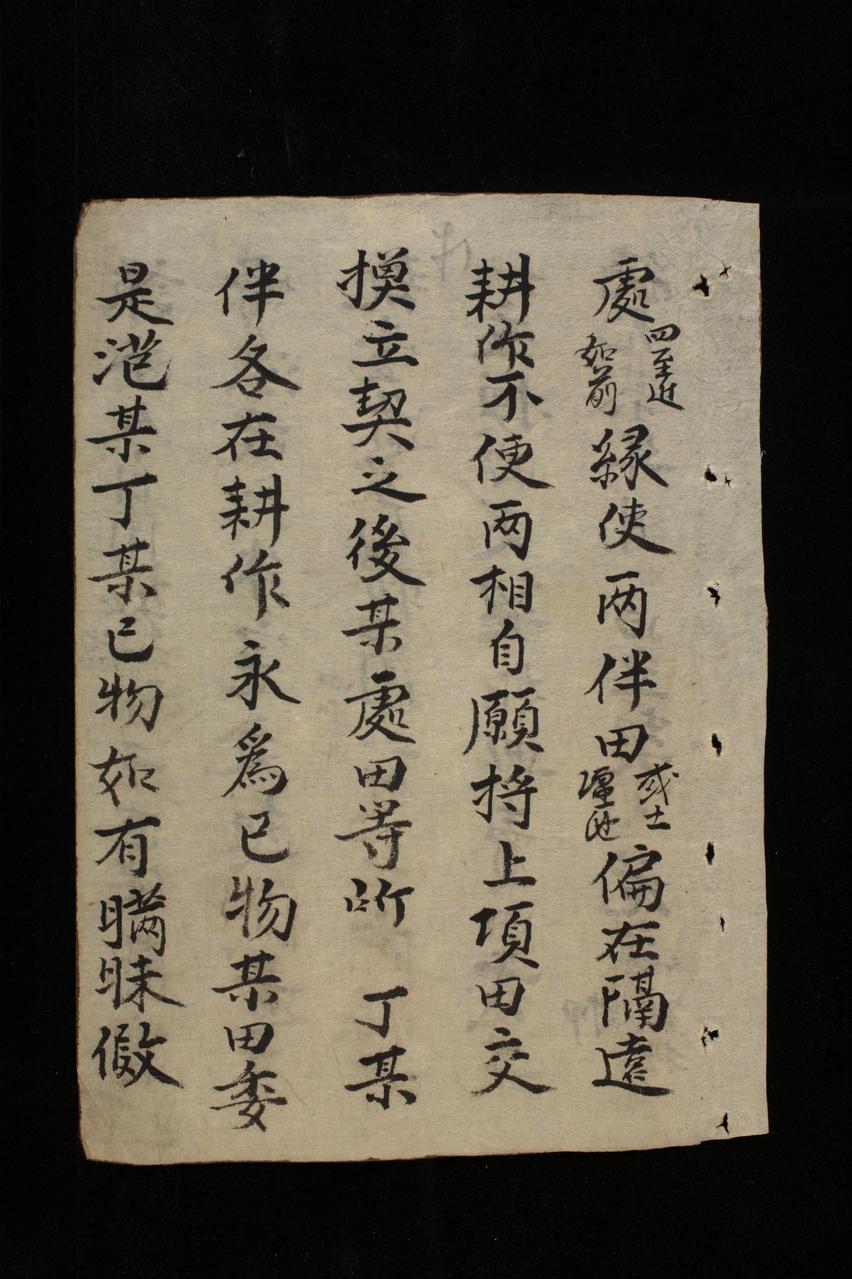 處四至近如前縁使两伴田或土塭池偏在隔遠
耕作不便两相自願将上項田交
換立契之後某處田等所丁某
伴各在耕作永爲已物某田委
是范某丁某已物如有瞞昧倣